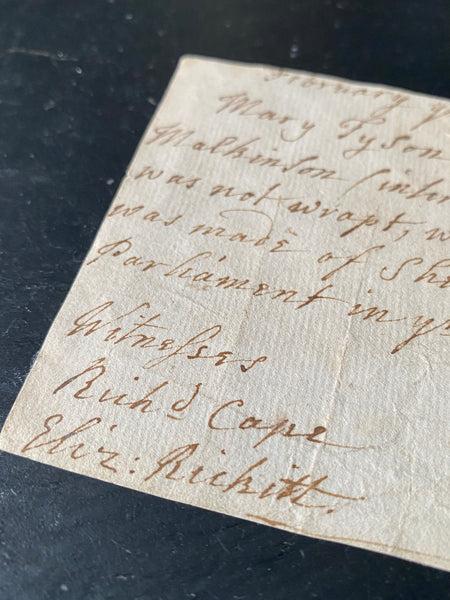 February
Mary Tyson
Malkinson (inter
was not wrapt, w
was made of She
Parliament in yt
Witneſses
Richd Cape
Eliz: Rickitt.